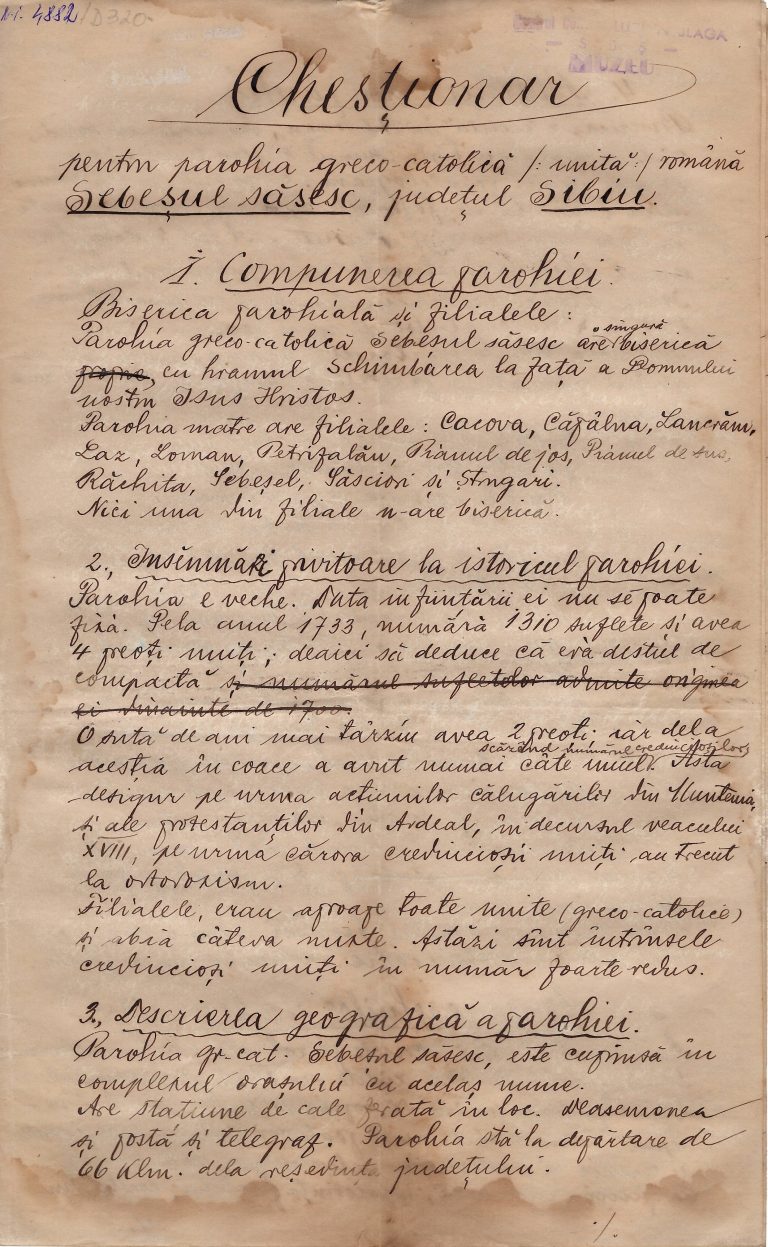 Nr. 4882/D320.
MUZEU
Chestionar
pentru parohia greco-catolică /: unită :/ română
Sebeșul săsesc, județul Sibiu.
1. Compunerea parohiei.
Biserica parohială și filialele:
Parohia greco-catolică Sebeșul săsesc are o singură biserică
proprie, cu hramul Schimbarea la față a Domnului
nostru Isus Hristos.
Parohia matre are filialele: Cacova, Căpâlna, Lancrăm,
Laz, Loman, Petrifalău, Pianul de jos, Pianul de sus,
Răchita, Sebeșel, Săsciori și Strugari.
Nici una din filiale n-are biserică.
2., Însemnări privitoare la istoricul parohiei.
Parohia e veche. Data înfiintării ei nu se poate
fixă. Pela anul 1733, numără 1310 suflete și avea
4 preoți uniți; deaici să deduce că eră destul de
compactă și numărul sufletelor admite originea
ei dinainte de 1700.
O sută de ani mai târziu avea 2 preoți iar dela
scăzând numărul credincioșilor
aceștia în coace a avut numai câte unul. Asta
desigur pe urma acțiunilor călugărilor din Muntenia,
și ale protestanților din Ardeal, în decursul veacului
XVIII, pe urma cărora credincioșii uniți au trecut
la ortodoxism.
Filialele, erau aproape toate unite (greco-catolice)
și abia câteva mixte. Astăzi sînt întrînsele
credincioși uniți în număr foarte redus.
3., Descrierea geografică a parohiei.
Parohia gr-cat. Sebeșul săsesc, este cuprinsă în
complexul orașului cu acelaș nume.
Are stațiune de cale ferată în loc. Deasemenea
și postă și telegraf. Parohia stă la depărtare de
66 Klm. dela reședința județului.
./.